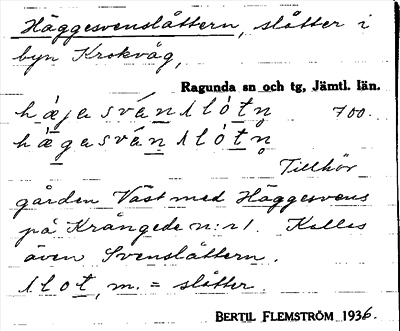 Häggesvenslåttern, slåtter i
byn Krokvåg,
Ragunda sn och tg, Jämtl. län.
700.
Tillhör
gården Väst med Häggesvens
på Krångede n:r 1. Kallas
även Svenslåttern.
slot, m. = slåtter.
BERTIL FLEMSTRÖM 1936.